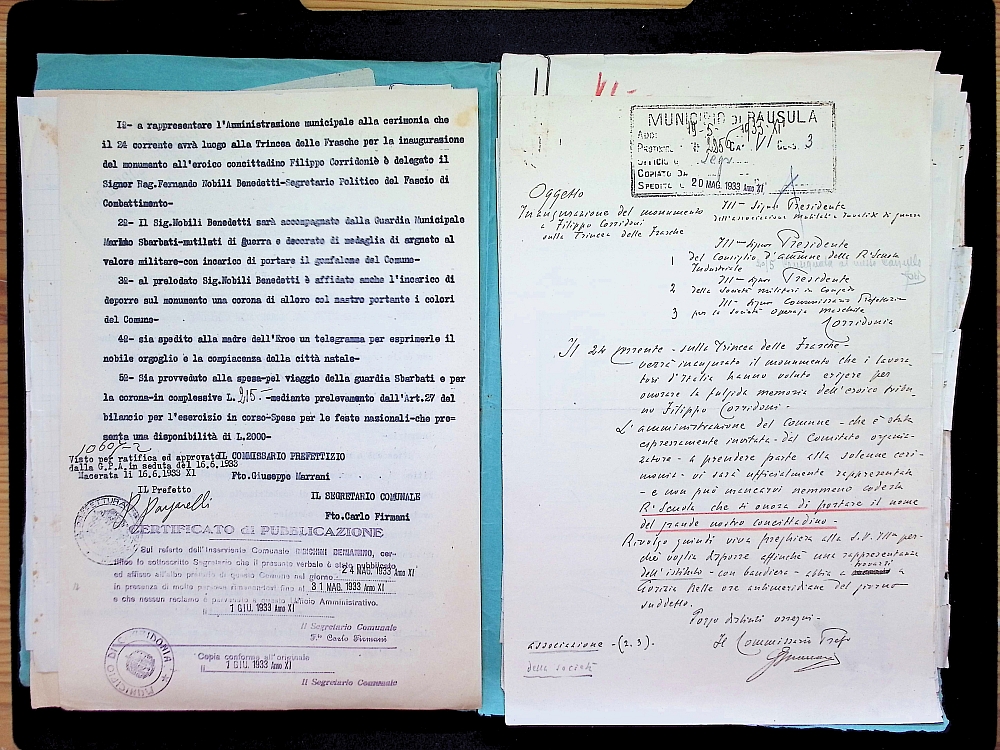 1º- a rappresentare l'Amministrazione municipale alla cerimonia che
il 24 corrente avrà luogo alla Trincea delle Frasche per la inaugurazione
del monumento all'eroico concittadino Filippo Corridoniè è delegato il
Signor Rag.Fernando Nobili Benedetti-Segretario Politico del Fascio di
Combattimento-
2º- Il Sig.Nobili Benedetti sarà accompagnato dalla Guardia Municipale
Sbarbati-mutilati di guerra e decorato di medaglia di argneto al
valore militare-con incarico di portare il gonfalone del Comune-
3º- al prelodato Sig.Nobili Benedetti è affidato anche l'incarico di
deporre sul monumento una corona di alloro col nastro portante i colori
del Comune-
4º- sia spedito alla madre dell'Eroe un telegramma per esprimerle il
nobile orgoglio e la compiacenza della città natale-
5º- Sia provveduto alla spesa-pel viaggio della guardia Sbarbati e per
la corona-in complessive L. 215.- -mediante prelevamento dall'Art.27 del
bilancio per l'esercizio in corso-Spese per le feste nazionali-che pre=
senta una disponibilità di L.2000-
10607-2
Visto per ratifica ed approvato
dalla G.P.A. in seduta del 16.6.1933
Macerata li 16.6.1933 XI
IL COMMISSARIO PREFETTIZIO
Fto.Giuseppe Marrani
IL Prefetto
IL SEGRETARIO COMUNALE
Fto.Carlo Firmani
CERTIFICATO di PUBBLICAZIONE
Sul referto dell'Inserviente Comunale cer-
tifico io sottoscritto Segretario che il presente verbale è stato pubblicato
ed affisso all'albo pretorio di questo Comune nel giorno 24 MAG. 1933 Anno XI
in presenza di molte persone fino al 31 MAG. 1933 Anno XI
e che nessun reclamo è pervenuto a questo Ufficio Amministrativo.
1 GIU. 1933 Anno XI
Il Segretario Comunale
Fto Carlo Firmani
Copia conforme all'originale
1 GIU. 1933 Anno XI
Il Segretario Comunale
MUNICIPIO DI CORRIDONIA
VI-
MUNICIPIO DI PAUSULA
ADDI 19-5-1933 XI
PROTOCOLLO N. CAT. VI CLAS. 3
UFFICIO Segr.
COPIATO DA
SPEDITO 20 MAG. 1933 Anno XI
Oggetto
Inaugurazione del monumento
a Filippo Corridoni
sulla Trincea delle Frasche
Ill- Signor Presidente
Ill- Signor Presidente
1 del Consiglio d'ammne della R. Scuola
Industriale
Ill- Signor Presidente
2 della Società militari in Congedo
Ill- Signor Commissario Prefettizio
3 per la Società Operaia Maschile
Corridonia
Il 24 corrente - sulla Trincea delle Frasche -
verrà inaugurato il monumento che i lavora-
tori d'Italia hanno voluto erigere per
onorare la fulgida memoria dell'eroico tribu-
no Filippo Corridoni.-
L'amministrazione del Comune - che è stata
espressamente invitata - dal Comitato organiz-
zatore - a prendere parte alla solenne ceri-
monia - vi sarà ufficialmente rappresentata
- e non può mancarvi nemmeno codesta
R. Scuola che si onora di portare il nome
del grande nostro concittadino -
Rivolgo quindi viva preghiera alla S.V. Ill- per-
chè voglia disporre affinchè una rappresentanza
dell'istituto - con bandiera - abbia a trovarsi a
Gorizia nelle ore antimeridiane del giorno
suddetto.
Porgo distinti ossequi -
Il Commissario Pref.
associazione - (2, 3).
della società